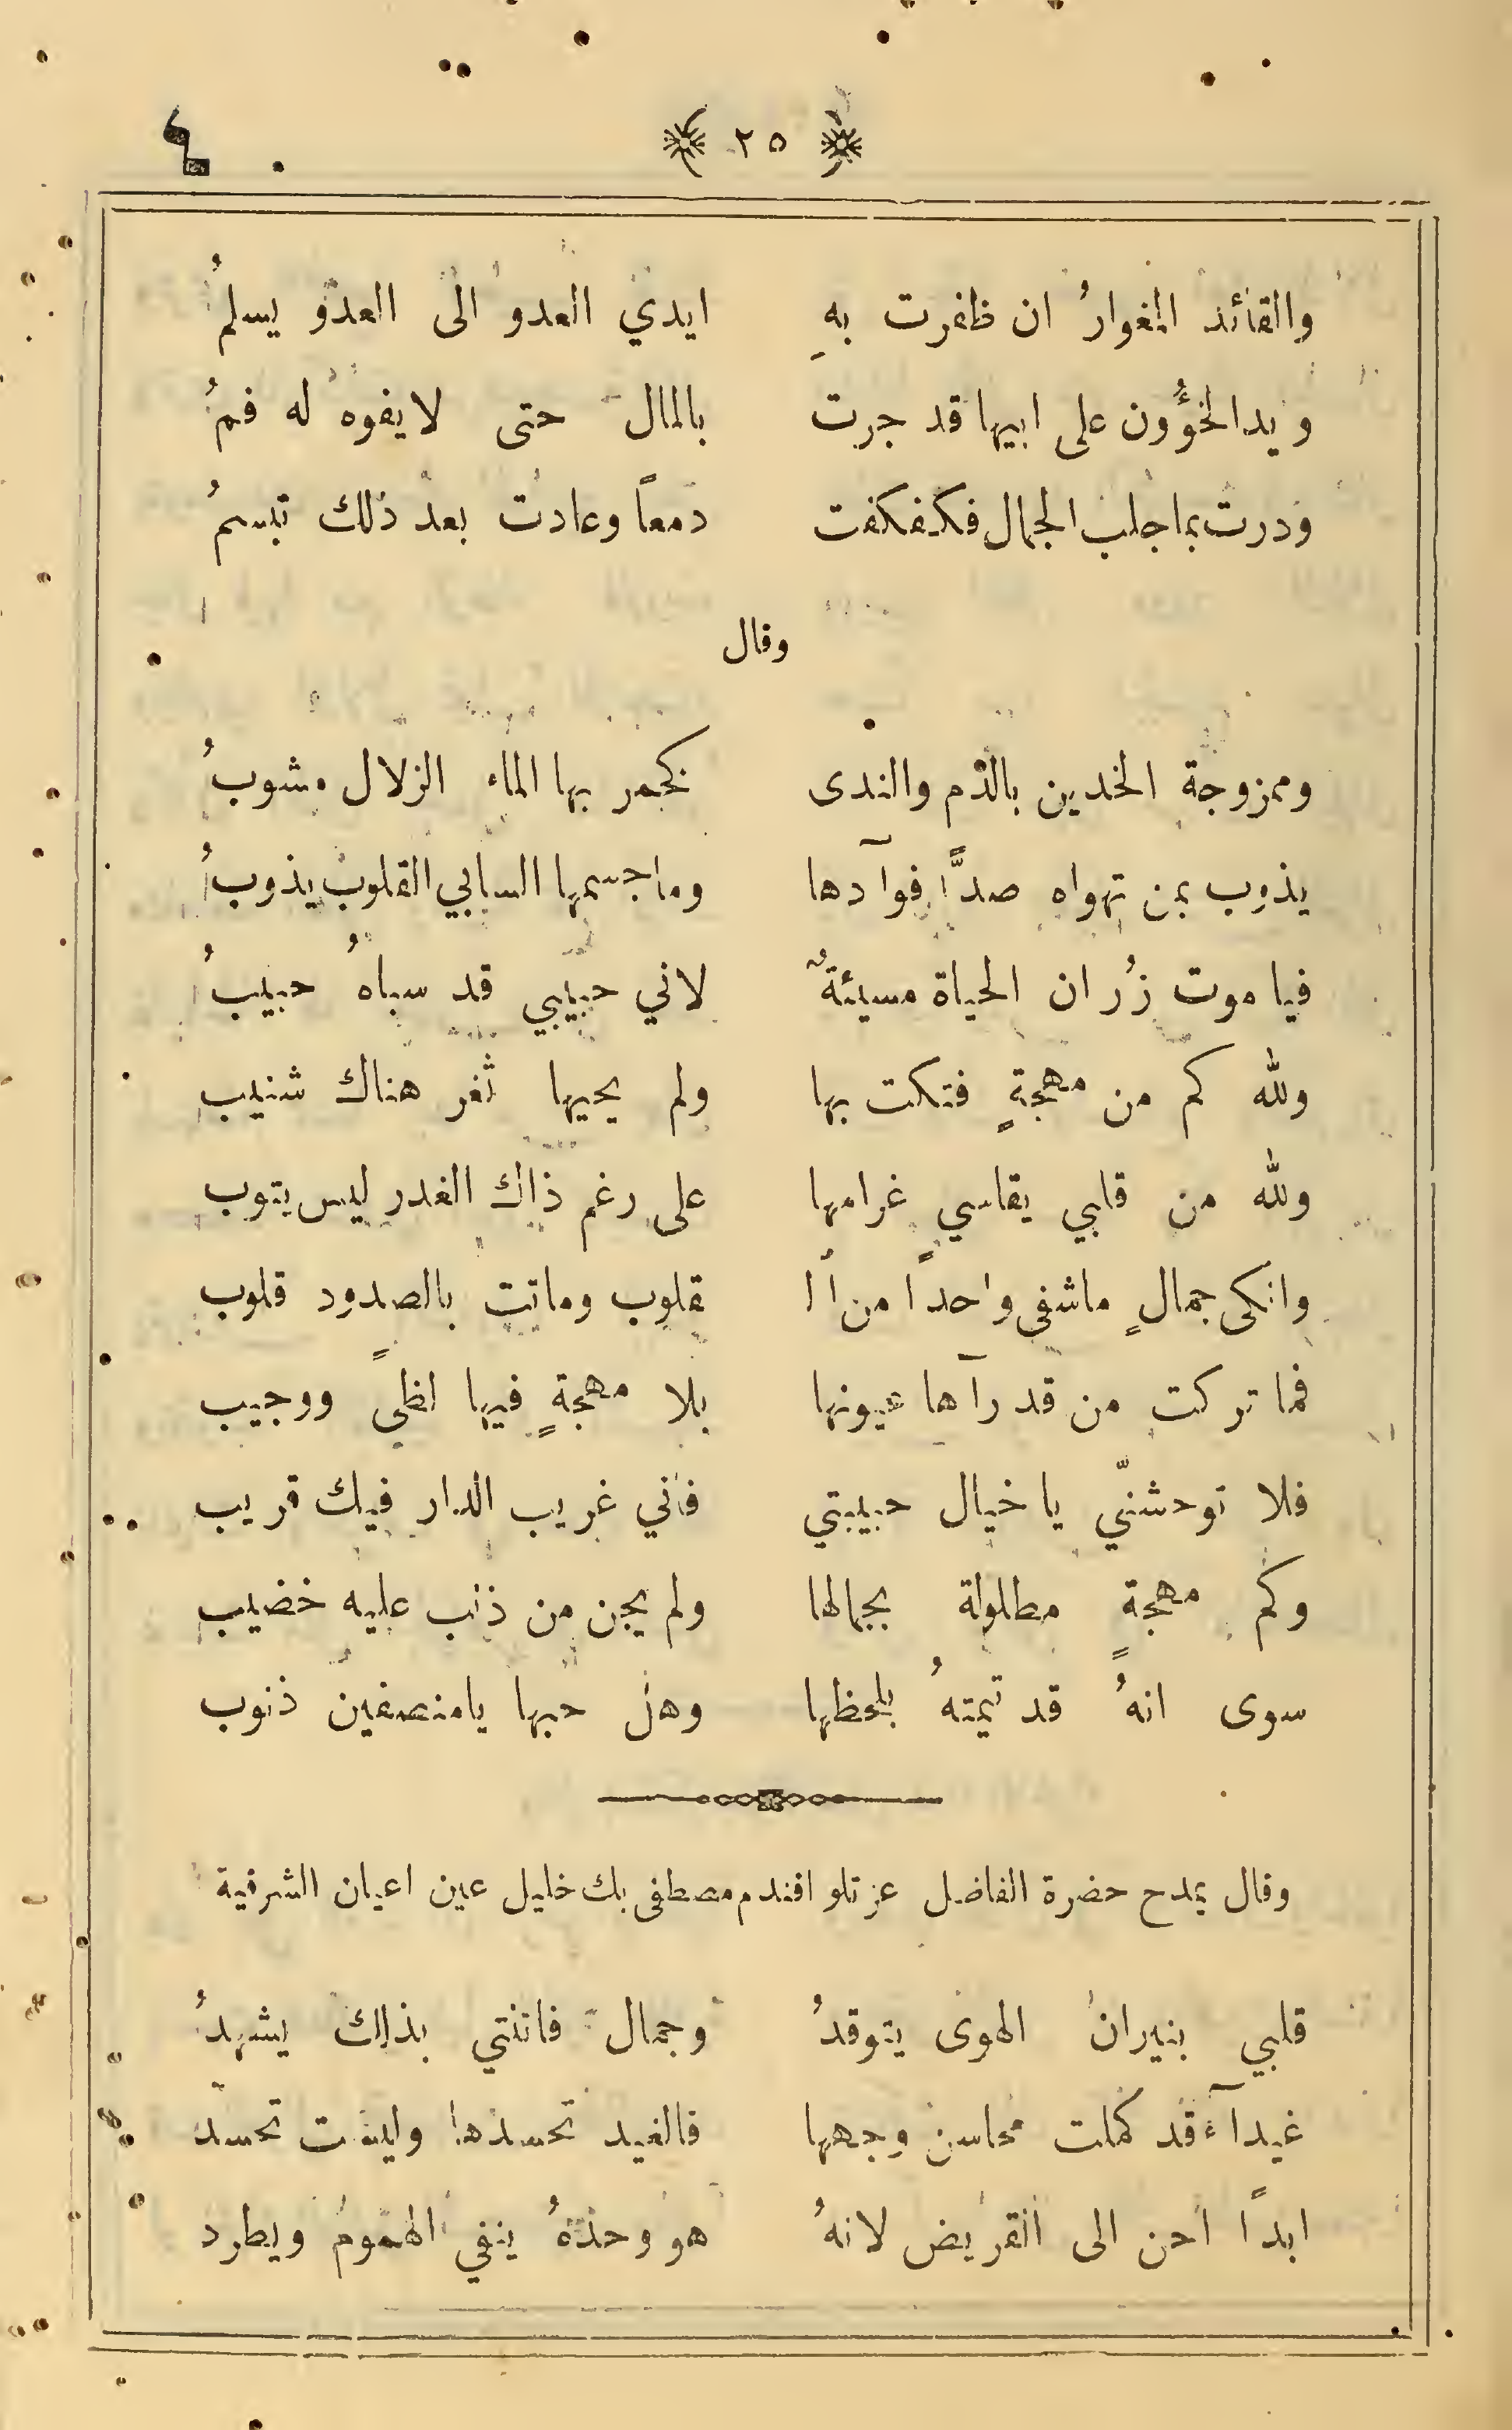 ٢٥
٤
والقائد المغوارُ ان ظفرت بهِ ايدي العدو الى العدو يسلمُ
ويد الخؤُون على ابيها قد جرت بالمال حتى لا يفوه له فمُ
ودرت بما جلب الجمال فكفكفت دمعاً وعادت بعد ذلك تبسمُ
وقال
وممزوجة الخدين بالدم والندى كخمر بها الماء الزلال مشوبُ
يذوب بمن تهواه صدًّا فوآدها وما جسمها السابي القلوب يذوبُ
فيا موت زُر ان الحياة مسيئةٌ لاني حبيبي قد سباهُ حبيبُ
ولله كم من مهجةٍ فتكت بها ولم يحيها ثغر هناك شنيب
ولله من قلبي يقاسي غرامها على رغم ذاك الغدر ليس يتوب
وانكى جمالٍ ما شفى واحدًا من أل قلوب وماتت بالصدود قلوب
فما تركت من قد رآها عيونها بلا مهجةٍ فيها لظىً ووجيب
فلا توحشنّي يا خيال حبيبتي فاني غريب الدار فيك قريب
وكم مهجةٍ مطلولة بجمالها ولم يجن من ذنب عليه خضيب
سوى انهُ قد تيمتهُ بلحظها وهل حبها يا منصفين ذنوب
وقال يمدح حضرة الفاضل عزتلو افندم مصطفى بك خليل عين اعيان الشرقية
قلبي بنيران الهوى يتوقدُ وجمال فاتنتي بذلك يشهدُ
غيدآء قد كملت محاسن وجهها فالغيد تحسدها وليست تحسد
ابدًا احن الى القريض لانهُ هو وحدهُ ينفي الهموم ويطرد